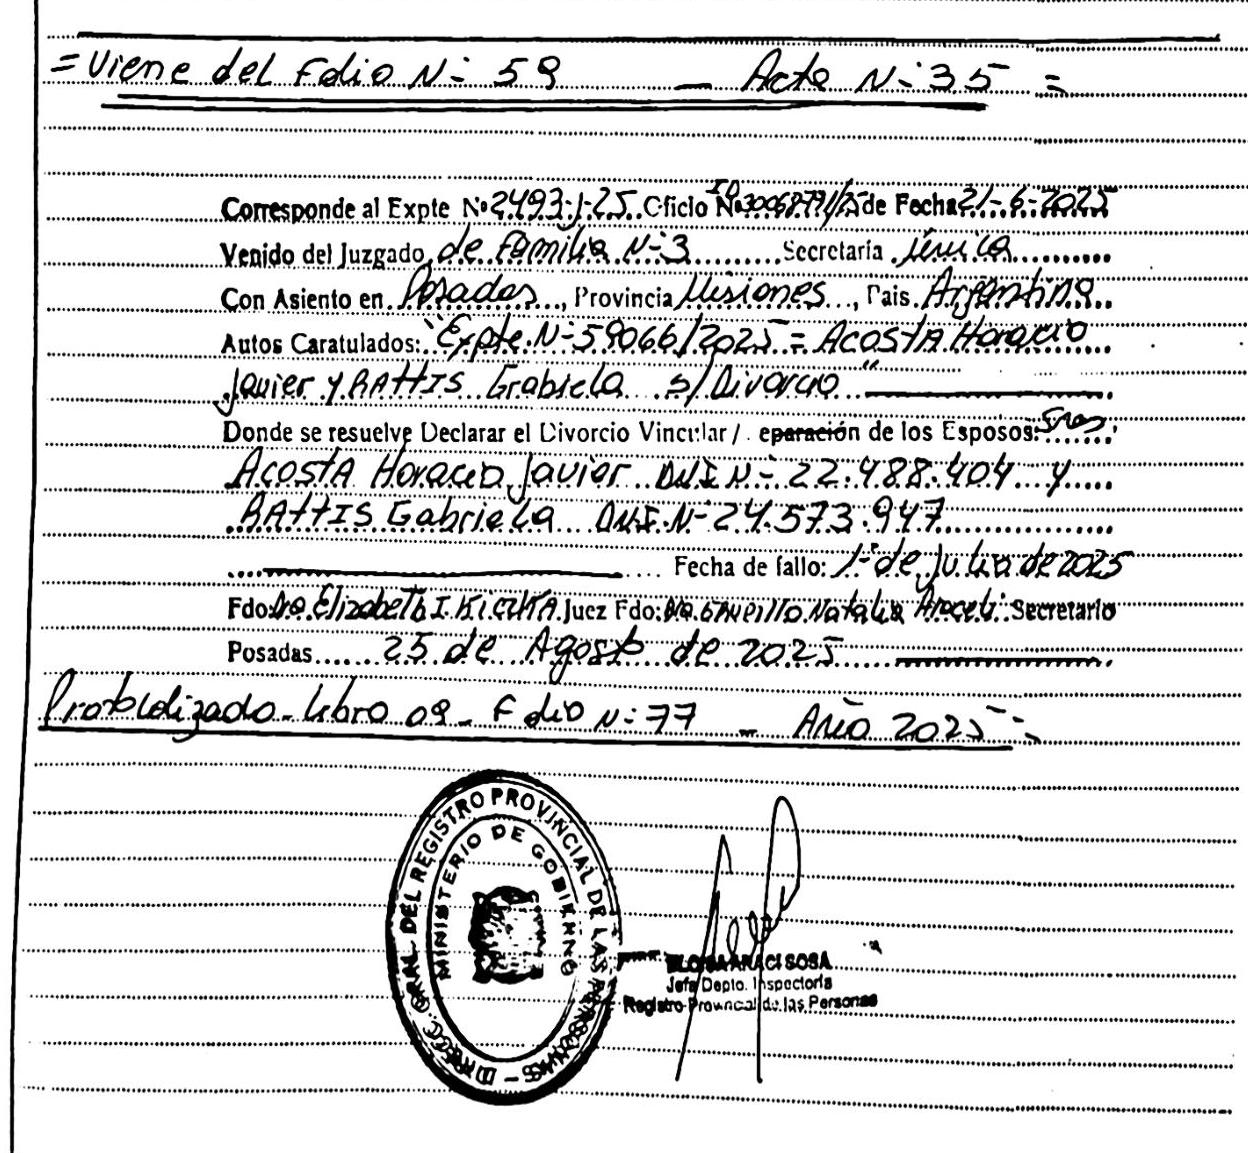 = Viene del Folio Nº 59 — Acta Nº 35 =
Corresponde al Expte Nº 2493-J-25 Oficio Nº ID 30068791/25 de Fecha 21-6-2025
Venido del Juzgado de Familia Nº 3 Secretaria única
Con Asiento en Posadas, Provincia Misiones, Pais Argentina
Autos Caratulados: "Expte Nº 59066/2025 = ACOSTA Horacio
Javier y RATTIS Gabriela s/ Divorcio"
Donde se resuelve Declarar el Divorcio Vincular / eparación de los Esposos: Sres
ACOSTA Horacio Javier DNI Nº 22.488.404 y
RATTIS Gabriela DNI Nº 24.573.947
Fecha de fallo: 1º de Julio de 2025
Fdo: Dra. Elizabeth I. Juez Fdo: Dra. Natalia Araceli Secretario
Posadas 25 de Agosto de 2025
Protocolizado - Libro 09 - Folio Nº 77 — Año 2025 =
DIRECC. GRAL. DEL REGISTRO PROVINCIAL DE LAS PERSONAS -
MINISTERIO DE GOBIERNO
ARACI SOSA
Jefa Depto. Inspectoria
Registro Provincial de las Personas